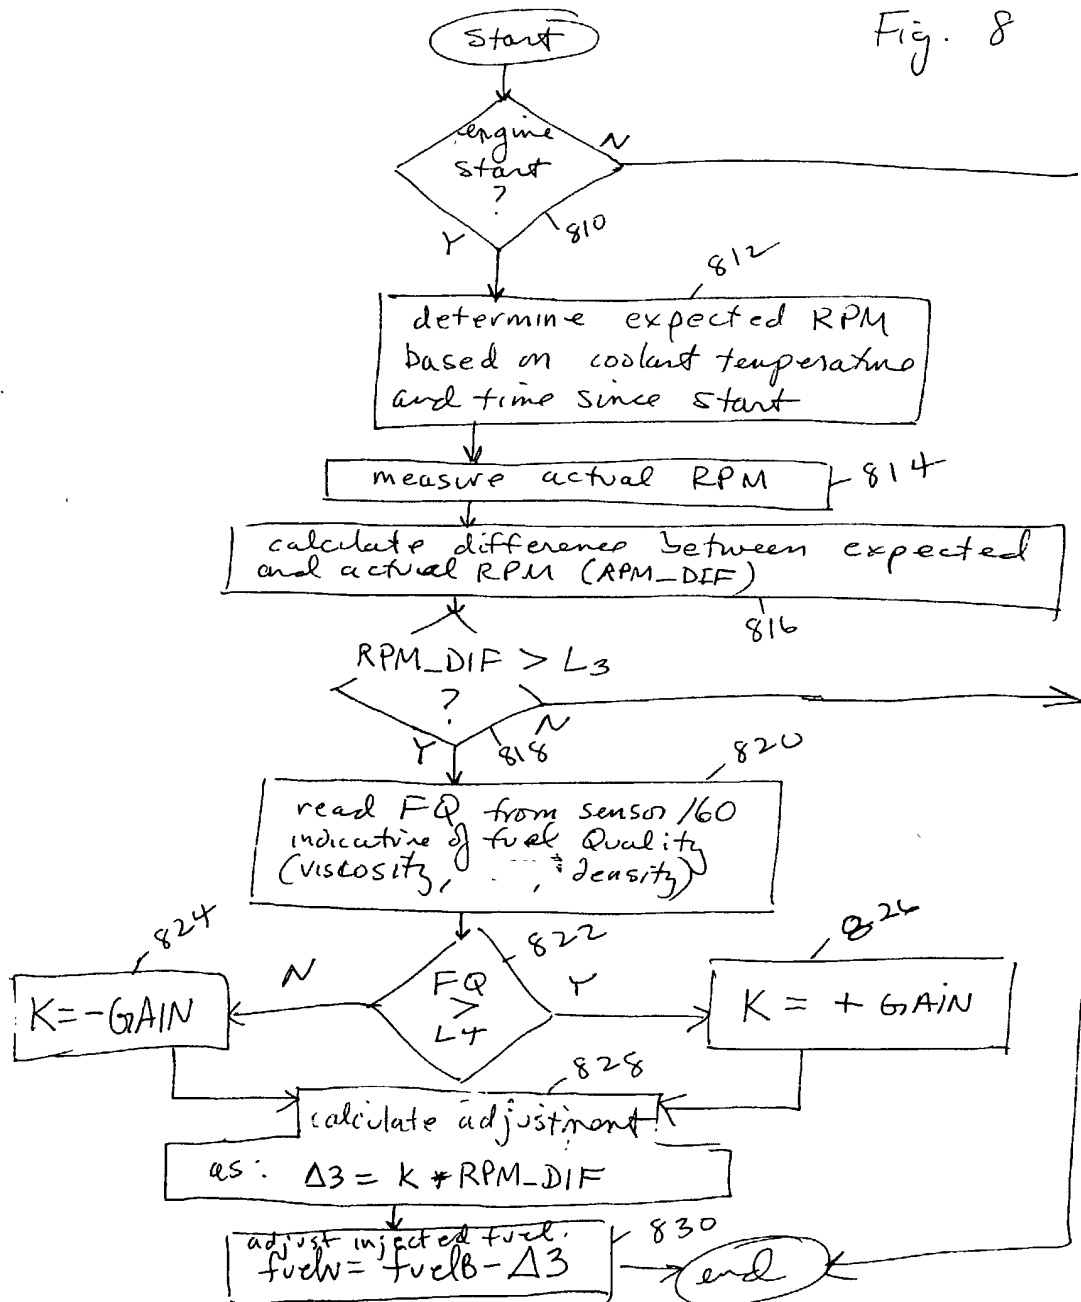 Fig. 8
start
engine
start
?
N
810
Y
812
determine expected RPM
based on coolant temperature
and time since start
measure actual RPM
814
calculate difference between expected
and actual RPM (RPM_DIF)
816
RPM_DIF > L3
?
N
818
Y
820
read FQ from sensor 160
indicative of fuel Quality
(viscosity, ..., density)
824
822
826
N
FQ
>
L4
Y
K=-GAIN
K = + GAIN
828
calculate adjustment
as: Δ3 = K * RPM_DIF
830
adjust injected fuel.
fuelN = fuelB - Δ3
end